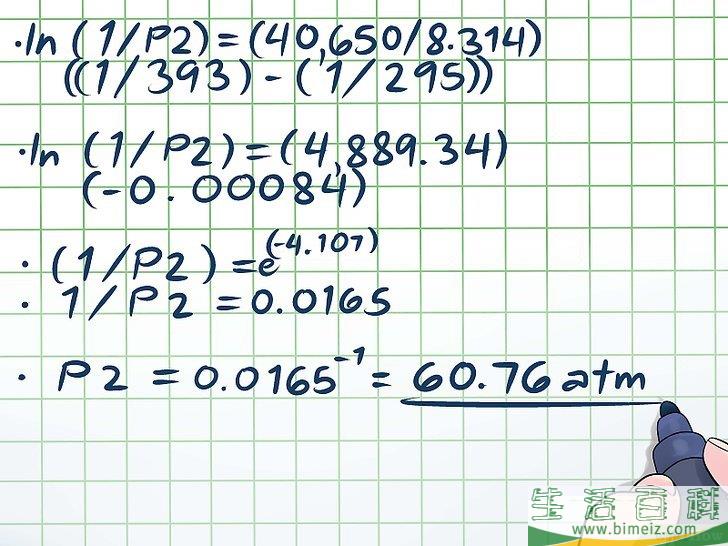 ·ln (1/P2) = (40,650/8.314)
((1/393) - (1/295))
·ln (1/P2) = (4,889.34)
(-0.00084)
· (1/P2) = e(-4.107)
· 1/P2 = 0.0165
· P2 = 0.0165-1 = 60.76 atm
生活百科
www.bimeiz.com